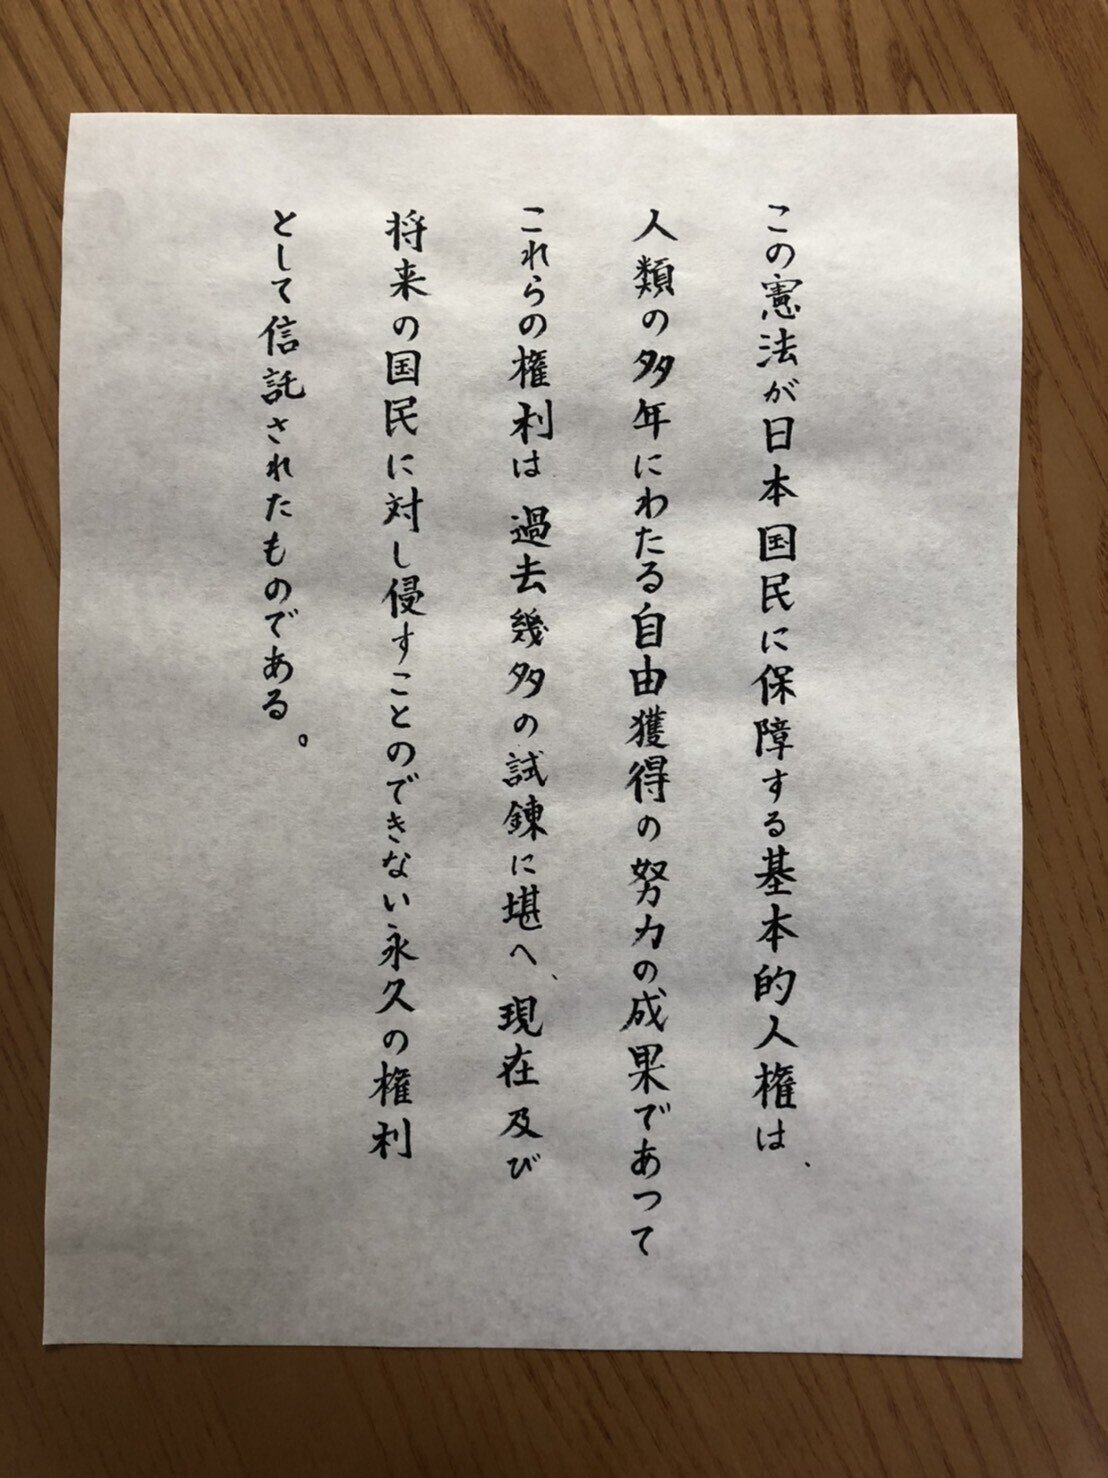 この憲法が日本国民に保障する基本的人権は、
人類の多年にわたる自由獲得の努力の成果であつて
これらの権利は過去幾多の試錬に堪へ、現在及び
将来の国民に対し侵すことのできない永久の権利
として信託されたものである。